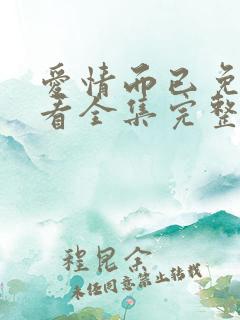 爱情而已免
看全集完整
程昆余
未经同意禁止转载